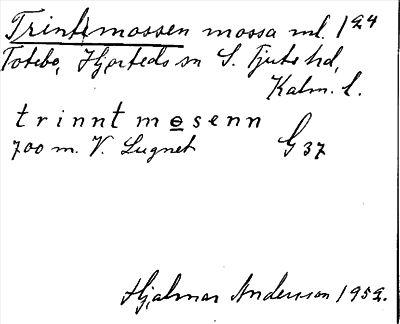 Trintmossen mossa ml. 124
Totebo, Hjorteds sn S. Tjusts hd,
Kalm. l.
trinnt mosenn
700 m. V. Lugnet G 37
Hjalmar Andersson 1952.